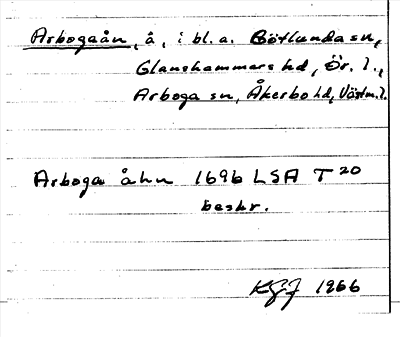 Arbogaån, å, i bl. a. Götlunda sn,
Glanshammars hd, Ör. l.,
Arboga sn, Åkerbo hd, Västm. l.
Arboga åhn 1696 LSA T 20
beskr.
1966